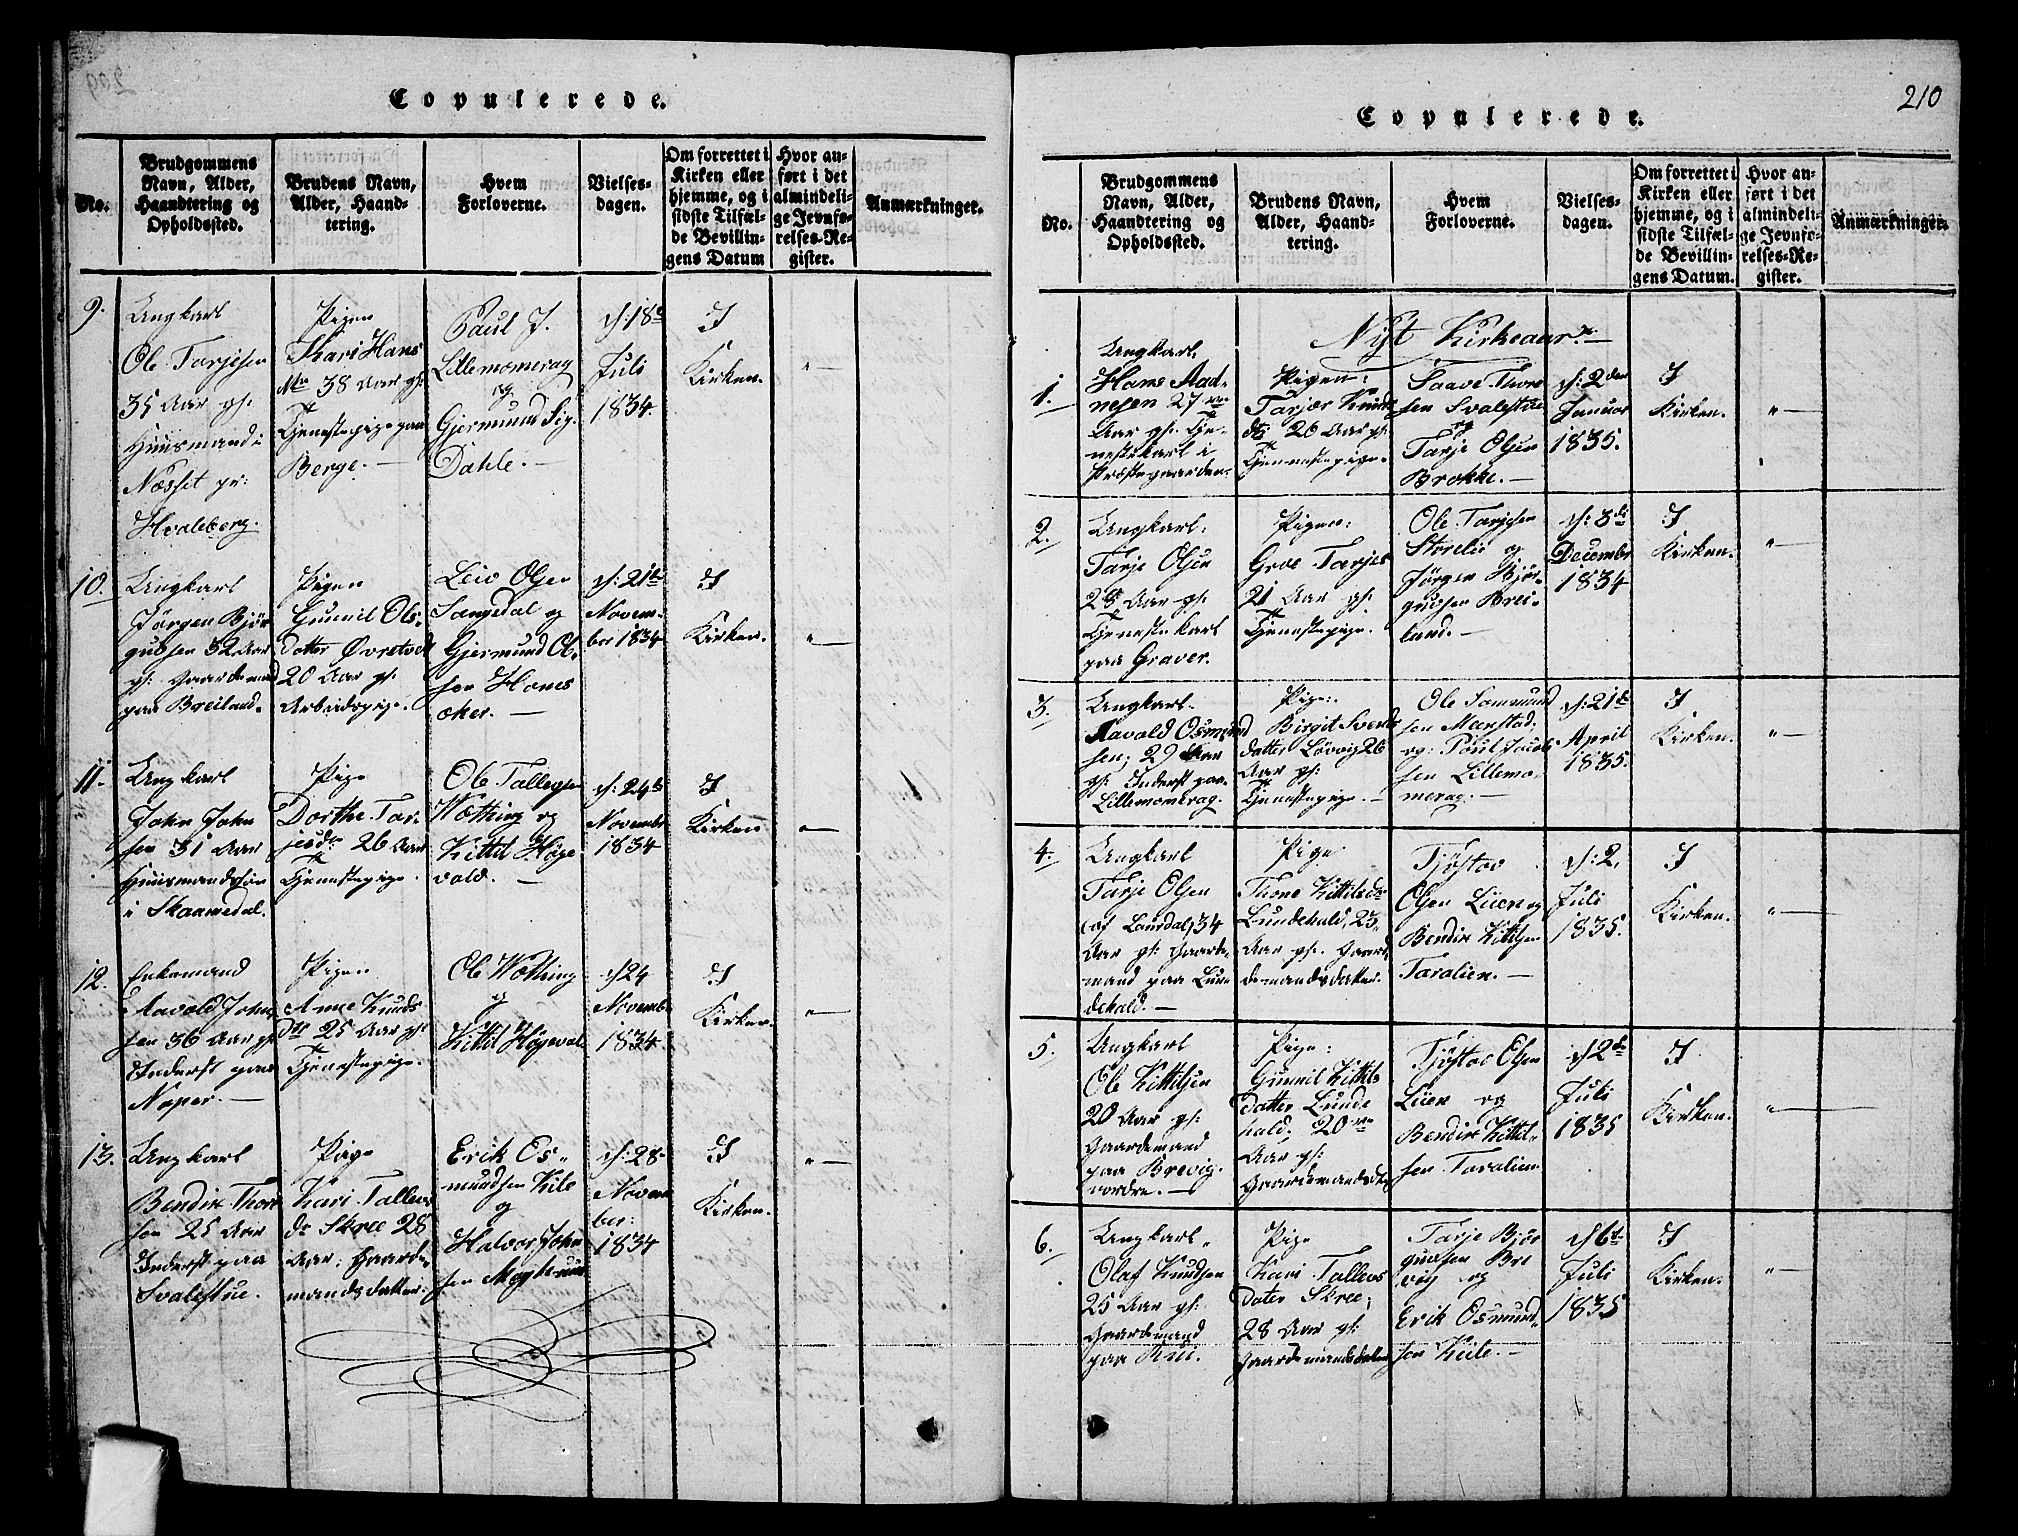 Copulerede.
No.
Brudgommens
Navn, Alder,
Haandtering og
Opholdssted.
Brudens Navn,
Alder, Haand-
tering.
Hvem
Forloverne.
Vielses-
dagen.
Om forrettet i
Kirken eller
hjemme, og i
sidste Tilfæl-
de Bevillin-
gens Datum
Hvor an-
ført i det
almindeli-
ge Jevnfø-
relses-Re-
gister.
Anmærkninger.
9.
Ungkarl
Ole Tarjesen
35 Aar gl:
Huusmand i
Næsset pr:
Hvaleberg.
Pigen
Kari Hans
38 Aar gl:
Tjenestepige paa
Berge. —
Paul J.
Lillemomerag
og
Gjermund Sig.
Dahle. —
d: 18de
Juli
1834.
I
Kirken.
" —
10.
Ungkarl
Jørgen Bjør
gufsen 32 Aar
gl: Gaardemand
paa Breiland.
Pigen
Gunnil Ols-
datter Øvretvedt
20 Aar gl:
Arbeidspige.
Leiv Olsen
Langedal og
Gjermund Ol-
sen Homs
oker. —
d: 21de
Novem-
ber 1834
I
Kirken.
" —
11.
Ungkarl
John John
sen 31 Aar
Huusmandssøn
i Skaamedal.
Pige
Dorthe Tar-
jesdr 26 Aar
Tjenestepige.
Ole Tallegsen
Wothing og
Kittil Høge
vold. —
d: 24de
Novembr
1834
I
Kirken
" —
12.
Enkemand
Aavold Johns
sen 36 Aar gl:
Inderst paa
Noper. —
Pigen
Anne Knuds
Dtr 25 Aar gl:
Tjenestepige.
Ole Wothing
og
Kittil Høgevol
d 24
Novemb.
1834
I
Kirken.
" —
13.
Ungkarl
Bendik Thor
sen 25 Aar
Inderst paa
Svalestue.
Pige
Kari Tallevs
dr Skree 28
Aar; Gaard-
mandsdatter.
Erik Os-
mundsen Kile
og
Halvor John
sen
d: 28
Novem
ber:
1834
I
Kirken.
" —
210
Copulerede.
No.
Brudgommens
Navn, Alder,
Haandtering og
Opholdssted.
Brudens Navn,
Alder, Haand-
tering.
Hvem
Forloverne.
Vielses-
dagen.
Om forrettet i
Kirken eller
hjemme, og i
sidste Tilfæl-
de Bevillin-
gens Datum.
Hvor an-
ført i det
almindeli-
ge Jevnfø-
relses-Re-
gister.
Anmærkninger.
Nyt Kirkeaar. —
1.
Ungkarl
Hans Aad-
nesen 27
Aar gl: Tje-
nestekarl i
Præstegaarden.
Pigen:
Tarjer Knuds
dtr 26 Aar gl:
Tjenestepige.
Saave Thors
sen Svalestue
og
Tarje Olsen
Brokke. —
d: 2den
Januar
1835.
I
Kirken.
" —
2.
Ungkarl:
Tarje Olsen
28 Aar gl:
Tjenestekarl
paa Graver.
Pigen:
Groe Tarjes
21 Aar gl:
Tjenestepige.
Ole Tarjesen
Storelie og
Jørgen Bjør-
gufsen Brei-
land. —
d: 3de
Decembr
1834
I
Kirken.
" —
3.
Ungkarl.
Aavold Osmund
sen, 29 Aar
gl: Inderst paa
Lillemomerag.
Pige:
Birgit Svends
datter Løvvig 26
Aar gl:
Tjenestepige. —
Ole Sommund
sen Meenstad
og: Poul Jacob
sen Lillemo-
merag. —
d: 21de
April
1835.
I
Kirken.
" —
4.
Ungkarl
Tarje Olsen
(af Laurdal) 34
Aar gl: Gaarde-
mand paa Lun-
dehald. —
Pige
Thone Kittilsdr
Lundehald, 25
Aar gl: Gaard-
demandsdatter.
Tjøstov
Olsen Lien og
Bendik Kittilsen
Taralien. —
d: 2.
Juli
1835.
I
Kirken.
" —
5.
Ungkarl
Ole Kittilsen
20 Aar gl:
Gaardemand
paa Brevig
nordre. —
Pige:
Gunnil Kittils
datter Lunde
hald. 20
Aar gl:
Gaardemandsdtr
Tjøstov Olsen
Lien og
Bendik Kittil-
sen Taralien
d 2de
Juli
1835
I
Kirken.
" —
6.
Ungkarl.
Olaf Knudsen
25 Aar gl:
Gaardemand
paa Rui.
Pige
Kari Tallevs
dater Skree,
28 Aar gl:
Gaardemandsdater
Tarje Bjør
gufsen Bre
vig og
Erik Osmund-
sen Kile. —
d 6te
Juli
1835
I
Kirken.
" —